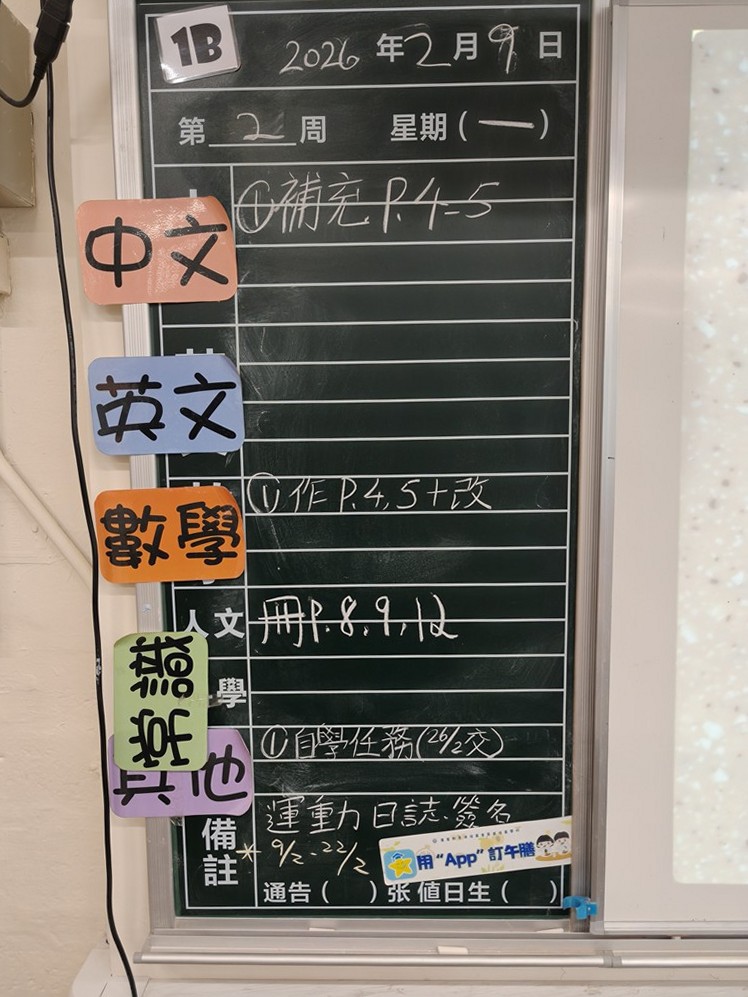 1B
2026年2月9日
第2周 星期(一)
中文 ①補充P.4-5
英文
數學 ①作P.4,5+改
人文 冊P.8,9,12
學
常識
其他 ①自學任務(26/2交)
備註 運動力日誌簽名
* 9/2-22/2
用“App”訂午膳
通告( )张 值日生( )